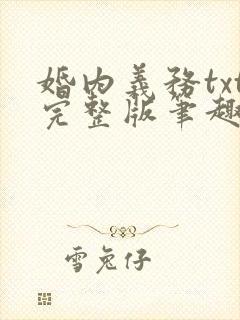 婚内義務txt
完整版筆趣
雪兔仔